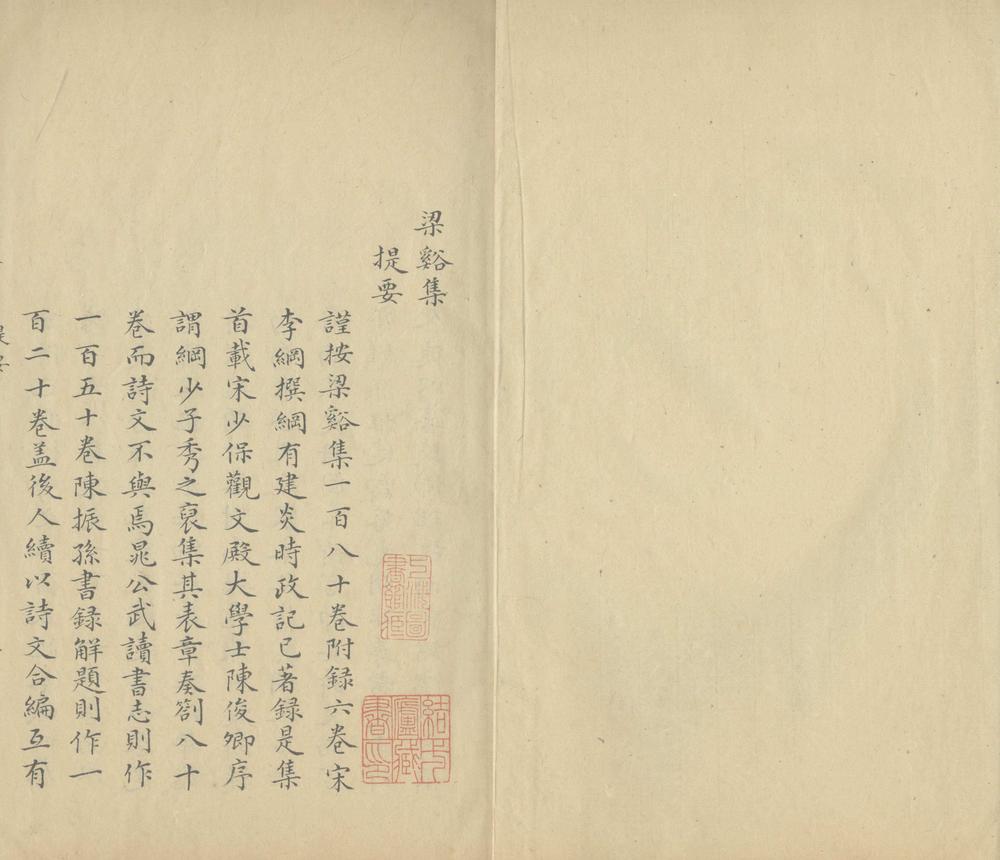 梁谿集
提要
謹按梁谿集一百八十卷附録六卷宋
李綱撰綱有建炎時政記已著録是集
首載宋少保觀文殿大學士陳俊卿序
謂綱少子秀之裒集其表章奏劄八十
卷而詩文不與焉晁公武讀書志則作
一百五十卷陳振孫書録解題則作一
百二十卷盖後人續以詩文合編互有